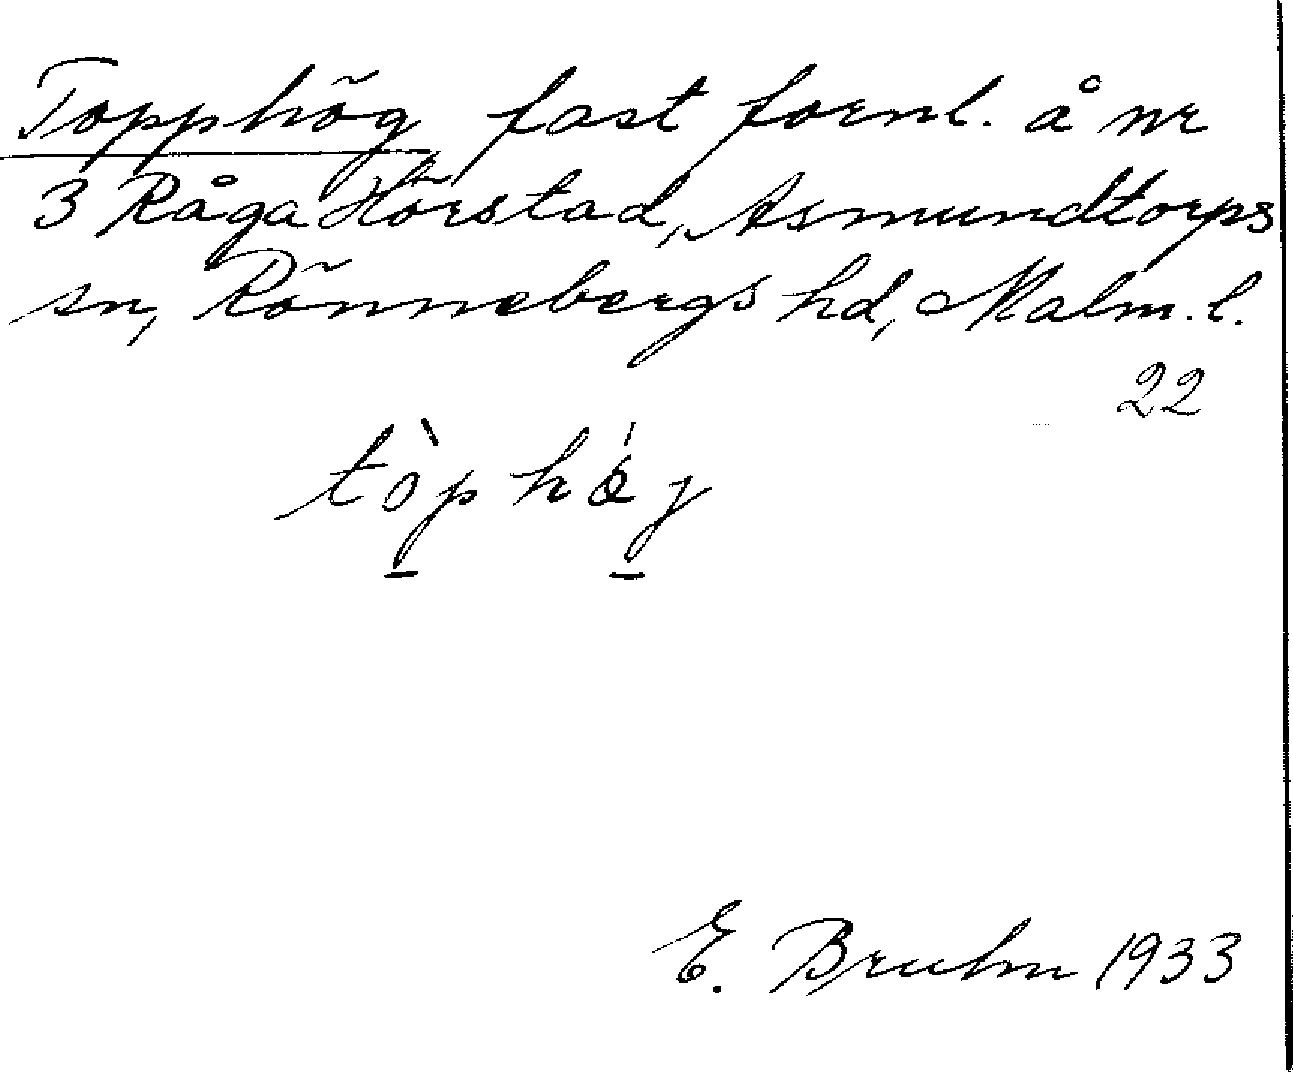 Topphög fast fornl. å nr
3 Råga Hörstad, Asmundtorps
sn, Rönnebergs hd, Malm. l.
22
tòphǿj
E. Bruhn 1933